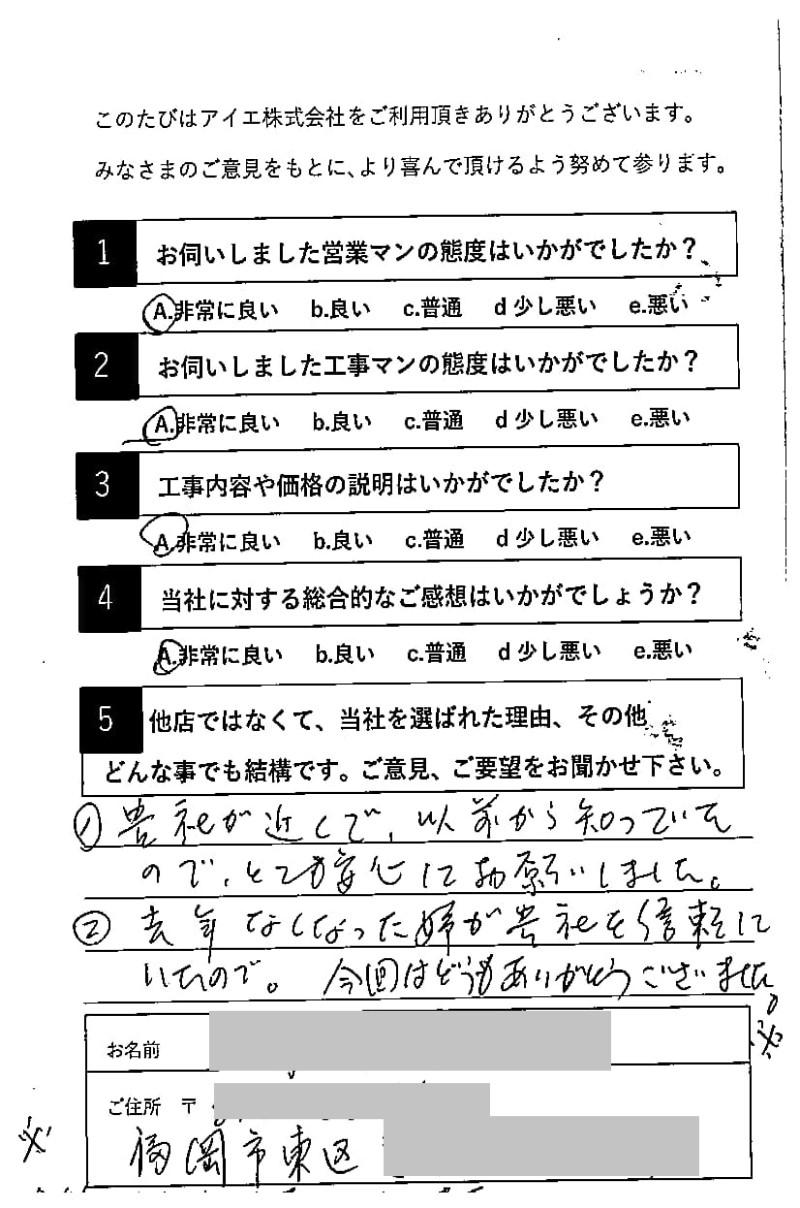 このたびはアイエ株式会社をご利用頂きありがとうございます。
みなさまのご意見をもとに、より喜んで頂けるよう努めて参ります。
1 お伺いしました営業マンの態度はいかがでしたか？
A.非常に良い b.良い c.普通 d 少し悪い e.悪い
2 お伺いしました工事マンの態度はいかがでしたか？
A.非常に良い b.良い c.普通 d 少し悪い e.悪い
3 工事内容や価格の説明はいかがでしたか？
A.非常に良い b.良い c.普通 d 少し悪い e.悪い
4 当社に対する総合的なご感想はいかがでしょうか？
A.非常に良い b.良い c.普通 d 少し悪い e.悪い
5 他店ではなくて、当社を選ばれた理由、その他
どんな事でも結構です。ご意見、ご要望をお聞かせ下さい。
① 貴社が近くで、以前から知っていた
ので、とても安心にお願いしました。
② 去年なくなった姉が貴社を信頼して
いたので。 今回はどうもありがとうございました。
お名前
ご住所 〒
福岡市東区